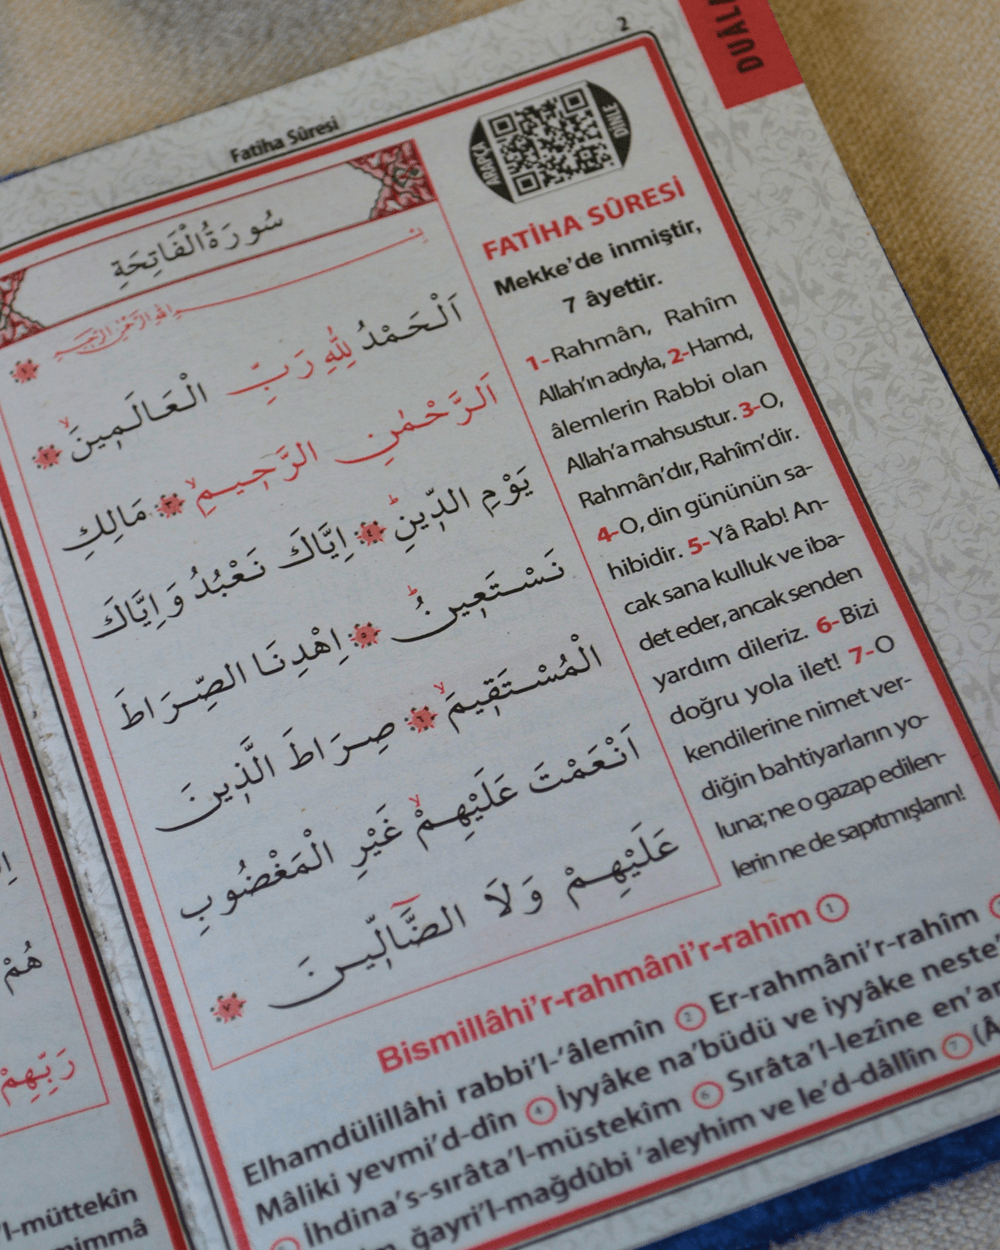 2
Fatiha Sûresi
DUÂLA
ARAPÇA
DİNLE
سُورَةُ الْفَاتِحَةِ
بِسْمِ اللهِ الرَّحْمٰنِ الرَّحِيمِ ﴿١﴾
اَلْحَمْدُ لِلّٰهِ رَبِّ الْعَالَمِينَۙ ﴿٢﴾
اَلرَّحْمٰنِ الرَّحِيمِۙ ﴿٣﴾ مَالِكِ
يَوْمِ الدِّينِۜ ﴿٤﴾ اِيَّاكَ نَعْبُدُ وَاِيَّاكَ
نَسْتَعِينُۜ ﴿٥﴾ اِهْدِنَا الصِّرَاطَ
الْمُسْتَقِيمَۙ ﴿٦﴾ صِرَاطَ الَّذِينَ
اَنْعَمْتَ عَلَيْهِمْۙ غَيْرِ الْمَغْضُوبِ
عَلَيْهِمْ وَلَا الضَّٓالِّينَ ﴿٧﴾
FATİHA SÛRESİ
Mekke'de inmiştir,
7 âyettir.
1-Rahmân, Rahîm
Allah'ın adıyla, 2-Hamd,
âlemlerin Rabbi olan
Allah'a mahsustur. 3-O,
Rahmân'dır, Rahîm'dir.
4-O, din gününün sa-
hibidir. 5-Yâ Rab! An-
cak sana kulluk ve iba-
det eder, ancak senden
yardım dileriz. 6-Bizi
doğru yola ilet! 7-O
kendilerine nimet ver-
diğin bahtiyarların yo-
luna; ne o gazap edilen-
lerin ne de sapıtmışların!
Bismillâhi'r-rahmâni'r-rahîm 1
Elhamdülillâhi rabbi'l-'âlemîn 2 Er-rahmâni'r-rahîm
Mâliki yevmi'd-dîn 4 İyyâke na'büdü ve iyyâke neste
İhdina's-sırâta'l-müstekîm 6 Sırâta'l-lezîne en'am
ğayri'l-mağdûbi 'aleyhim ve le'd-dâllîn 7 (Â
هُمْ
رَبِّهِمْ
'l-müttekîn
mimmâ